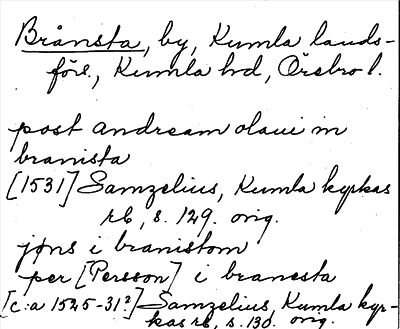 Brånsta, by, Kumla lands-
förs., Kumla hd, Örebro l.
post andream olaui in
branista
[1531] Samzelius, Kumla kyrkas
rb, s. 129. orig.
jöns i branistom
per [Persson] i branesta
[c:a 1525-31?] Samzelius, Kumla kyr-
kas rb, s. 130. orig.